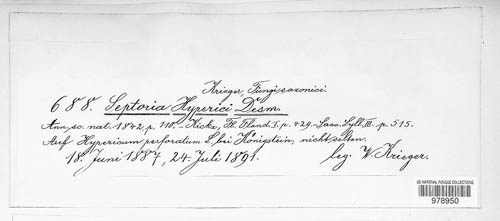 Krieger, Fungi saxonici.
688. Septoria Hyperici Desm.
Ann. sc. nat. 1842. p. 110. - Kickx, Fl. Fland. I. p. 429. - Sacc. Syll. III. p. 515.
Auf Hypericum perforatum L. bei Königstein, nicht selten.
18. Juni 1887, 24. Juli 1891. leg. W. Krieger.
US NATIONAL FUNGUS COLLECTIONS
978950